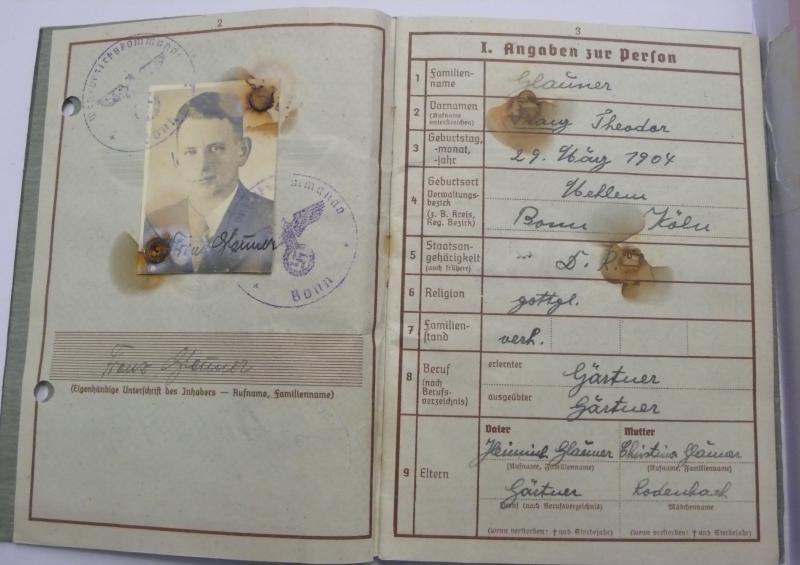 2
Wehrbezirkskommando
Bonn
Franz Glauner
Wehrbezirkskommando
Bonn
Franz Glauner
(Eigenhändige Unterschrift des Inhabers — Rufname, Familienname)
3
I. Angaben zur Person
1 Familien-
name Glauner
2 Vornamen
(Rufname
unterstreichen) Franz Theodor
3 Geburtstag,
-monat,
-jahr 29. März 1904
4 Geburtsort Mehlem
Verwaltungs-
bezirk
(z. B. Kreis,
Reg. Bezirk) Bonn Köln
5 Staatsan-
gehörigkeit
(auch frühere) D. R.
6 Religion gottgl.
7 Familien-
stand verh.
8 Beruf
(nach
Berufs-
verzeichnis)
erlernter Gärtner
ausgeübter Gärtner
9 Eltern
Vater Mutter
Heinrich Glauner Christina Glauner
(Rufname, Familienname) (Rufname, Familienname)
Gärtner Rodenbach
Beruf (nach Berufsverzeichnis) Mädchenname
(wenn verstorben: † und Sterbejahr) (wenn verstorben: † und Sterbejahr)